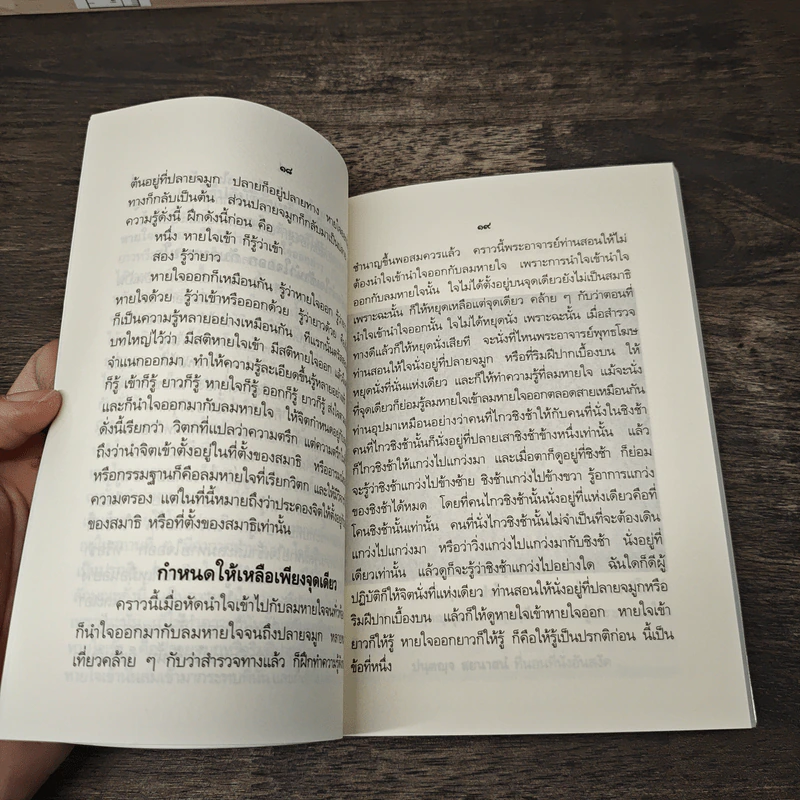 ๑๘
ต้นอยู่ที่ปลายจมูก ปลายก็อยู่ปลายทาง หายใจ
ทางก็กลับเป็นต้น ส่วนปลายจมูกก็กลับมาเป็น
ความรู้ดั่งนี้ ฝึกดังนี้ก่อน คือ
หนึ่ง หายใจเข้า ก็รู้ว่าเข้า
สอง รู้ว่ายาว
หายใจออกก็เหมือนกัน รู้ว่าหายใจออก
หายใจด้วย รู้ว่าเข้าหรือออกด้วย รู้ว่ายาวด้วย
ก็เป็นความรู้หลายอย่างเหมือนกัน ทีแรกนั้น
บทใหญ่ไว้ว่า มีสติหายใจเข้า มีสติหายใจออก
จำแนกออกมา ทำให้ความรู้ละเอียดขึ้นรู้หลายอย่าง
ก็รู้ เข้าก็รู้ ยาวก็รู้ หายใจก็รู้ ออกก็รู้ ยาวก็รู้
และก็นำใจออกมากับลมหายใจ ให้จิตกำหนดอยู่
ดั่งนี้เรียกว่า วิตกที่แปลว่าความตรึก แต่ความ
ถึงว่านำจิตเข้าตั้งอยู่ในที่ตั้งของสมาธิ หรือ
หรือกรรมฐานก็คือลมหายใจที่เรียกวิตก และให้
ความตรอง แต่ในที่นี้หมายถึงว่าประคองจิตให้ตั้งอยู่
ของสมาธิ หรือที่ตั้งของสมาธิเท่านั้น
กำหนดให้เหลือเพียงจุดเดียว
คราวนี้เมื่อหัดนำใจเข้าไปกับลมหายใจจน
ก็นำใจออกมากับลมหายใจจนถึงปลายจมูก หลาย
เที่ยวคล้าย ๆ กับว่าสำรวจทางแล้ว ก็ฝึกทำความรู้
๑๙
ชำนาญขึ้นพอสมควรแล้ว คราวนี้พระอาจารย์ท่านสอนให้ไม่
ต้องนำใจเข้านำใจออกกับลมหายใจ เพราะการนำใจเข้านำใจ
ออกกับลมหายใจนั้น ใจไม่ได้ตั้งอยู่บนจุดเดียวยังไม่เป็นสมาธิ
เพราะฉะนั้น ก็ให้หยุดเหลือแต่จุดเดียว คล้าย ๆ กับว่าตอนที่
นำใจเข้านำใจออกนั้น ใจไม่ได้หยุดนั่ง เพราะฉะนั้น เมื่อสำรวจ
ทางดีแล้วก็ให้หยุดนั่งเสียที จะนั่งที่ไหนพระอาจารย์พุทธโฆษ
ท่านสอนให้ใจนั่งอยู่ที่ปลายจมูก หรือที่ริมฝีปากเบื้องบน ให้
หยุดนั่งที่นั่นแห่งเดียว และก็ให้ทำความรู้ที่ลมหายใจ แม้จะนั่ง
ที่จุดเดียวก็ย่อมรู้ลมหายใจเข้าลมหายใจออกตลอดสายเหมือนกัน
ท่านอุปมาเหมือนอย่างว่าคนที่ไกวชิงช้าให้กับคนที่นั่งในชิงช้า
คนที่ไกวชิงช้านั้นก็นั่งอยู่ที่ปลายเสาชิงช้าข้างหนึ่งเท่านั้น แล้ว
ก็ไกวชิงช้าให้แกว่งไปแกว่งมา และเมื่อตาก็ดูอยู่ที่ชิงช้า ก็ย่อม
จะรู้ว่าชิงช้าแกว่งไปข้างซ้าย ชิงช้าแกว่งไปข้างขวา รู้อาการแกว่ง
ของชิงช้าได้หมด โดยที่คนไกวชิงช้านั้นนั่งอยู่ที่แห่งเดียวคือที่
โคนชิงช้านั้นเท่านั้น คนที่นั่งไกวชิงช้านั้นไม่จำเป็นที่จะต้องเดิน
แกว่งไปแกว่งมา หรือว่าวิ่งแกว่งไปแกว่งมากับชิงช้า นั่งอยู่ที่
เดียวเท่านั้น แล้วดูก็จะรู้ว่าชิงช้าแกว่งไปอย่างใด ฉันใดก็ดีผู้
ปฏิบัติก็ให้จิตนั่งที่เดียว ท่านสอนให้นั่งอยู่ที่ปลายจมูกหรือ
ริมฝีปากเบื้องบน แล้วก็ให้ดูหายใจเข้าหายใจออก หายใจเข้า
ยาวก็ให้รู้ หายใจออกยาวก็ให้รู้ ก็คือให้รู้เป็นปรกติก่อน นี้เป็น
ข้อที่หนึ่ง